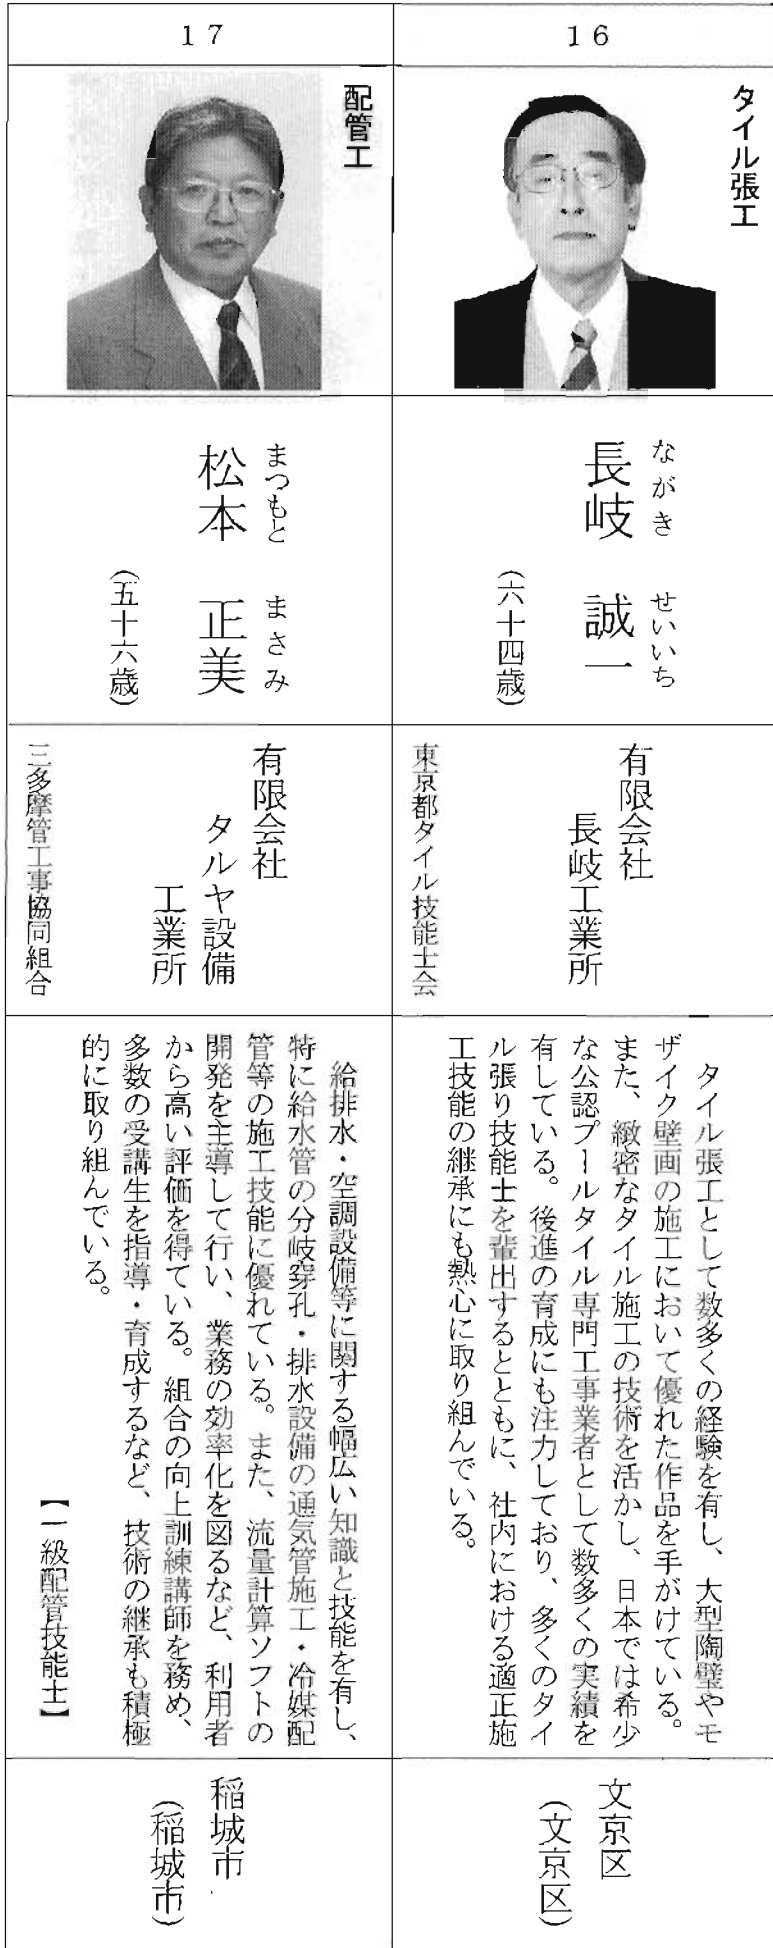 16
タイル張工
ながき　せいいち
長岐　誠一
（六十四歳）
有限会社
長岐工業所
東京都タイル技能士会
タイル張工として数多くの経験を有し、大型陶壁やモ
ザイク壁画の施工において優れた作品を手がけている。
また、緻密なタイル施工の技術を活かし、日本では希少
な公認プールタイル専門工事業者として数多くの実績を
有している。後進の育成にも注力しており、多くのタイ
ル張り技能士を輩出するとともに、社内における適正施
工技能の継承にも熱心に取り組んでいる。
文京区
（文京区）
17
配管工
まつもと　まさみ
松本　正美
（五十六歳）
有限会社
タルヤ設備
工業所
三多摩管工事協同組合
給排水・空調設備等に関する幅広い知識と技能を有し、
特に給水管の分岐穿孔・排水設備の通気管施工・冷媒配
管等の施工技能に優れている。また、流量計算ソフトの
開発を主導して行い、業務の効率化を図るなど、利用者
から高い評価を得ている。組合の向上訓練講師を務め、
多数の受講生を指導・育成するなど、技術の継承も積極
的に取り組んでいる。
【一級配管技能士】
稲城市
（稲城市）